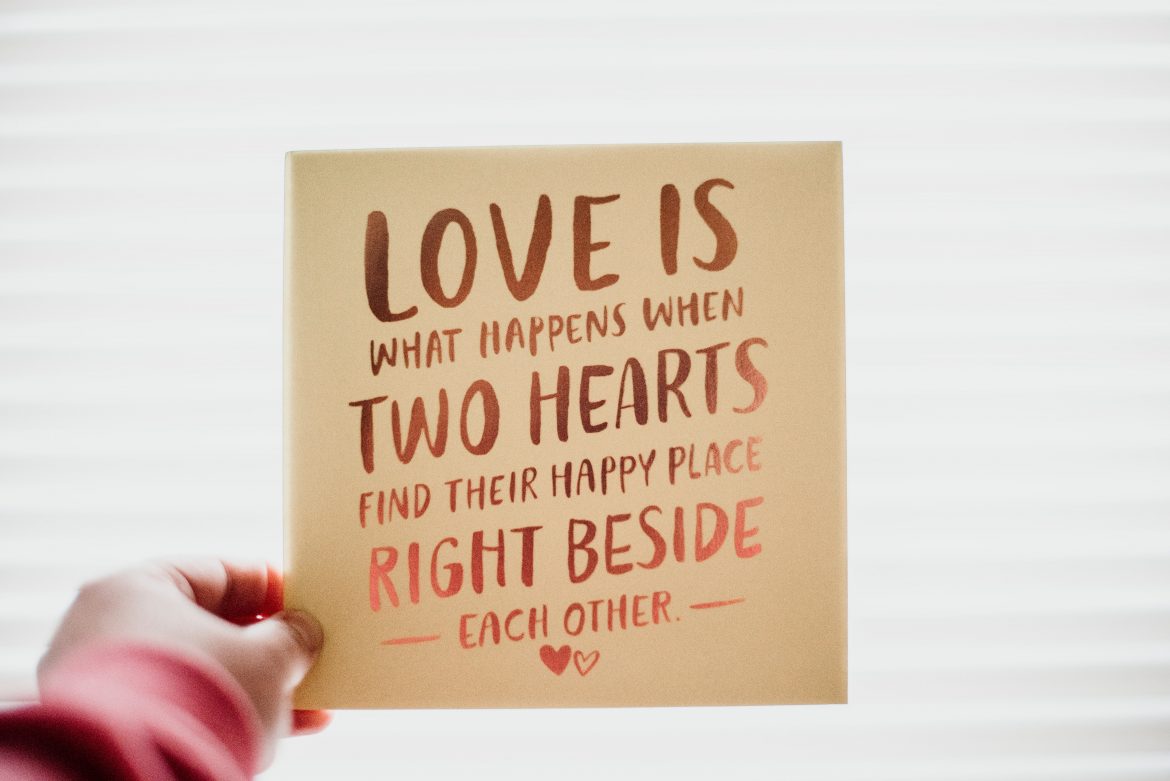 LOVE IS
WHAT HAPPENS WHEN
TWO HEARTS
FIND THEIR HAPPY PLACE
RIGHT BESIDE
EACH OTHER.